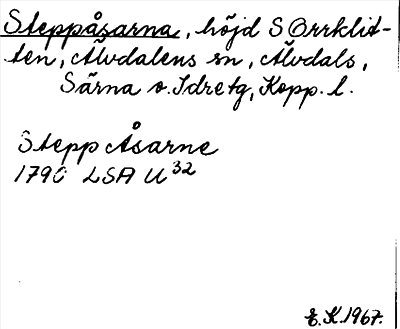 Steppåsarna, höjd S Orrklit-
ten, Älvdalens sn, Älvdals,
Särna o. Idre tg, Kopp. l.
Stepp Åsarne
1790 LSA U 32
E.K. 1967.